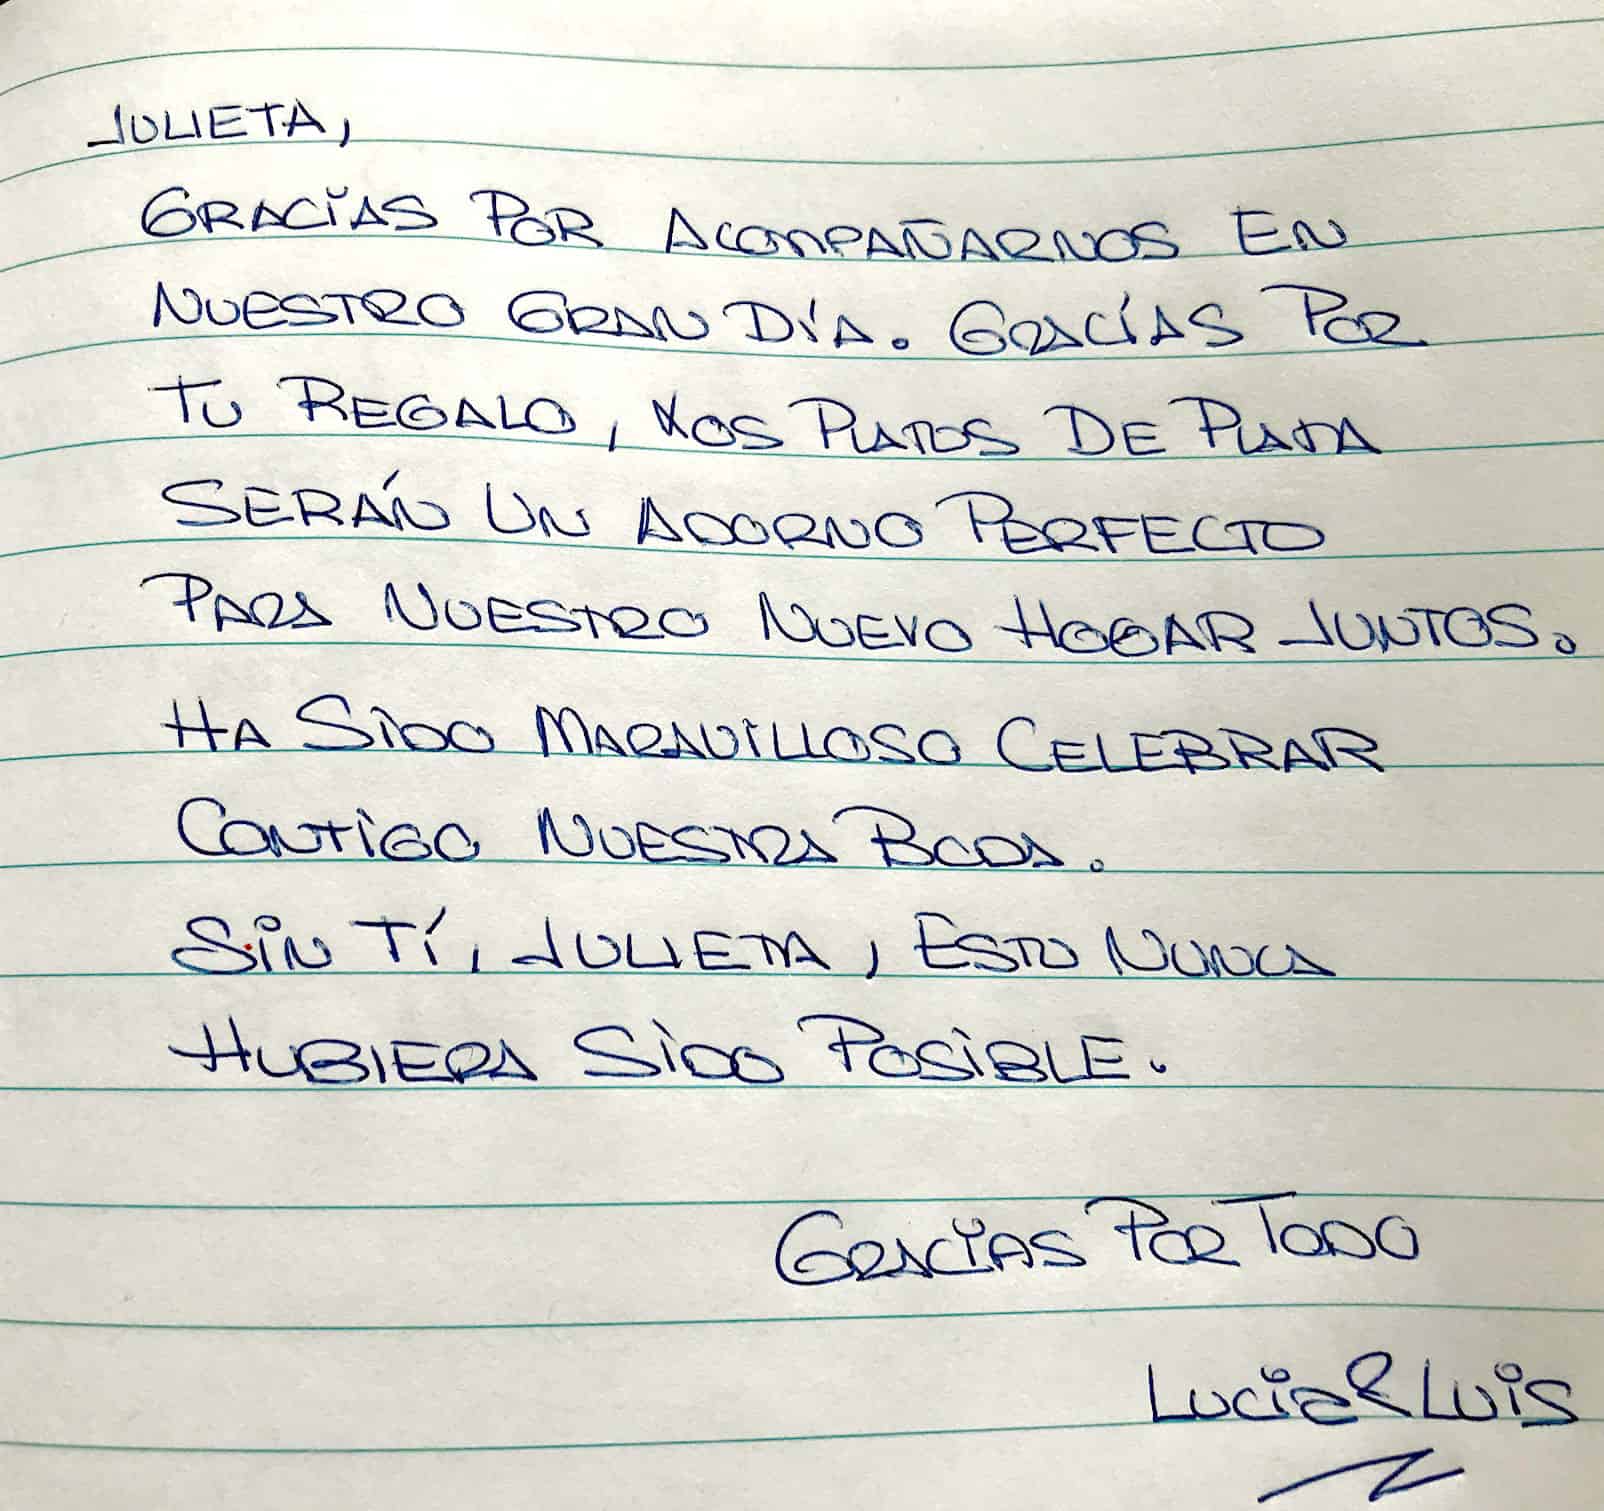 JULIETA,
GRACIAS POR ACOMPAÑARNOS EN
NUESTRO GRAN DÍA. GRACÍAS POR
TU REGALO, LOS PLATOS DE PLATA
SERÁN UN ADORNO PERFECTO
PARA NUESTRO NUEVO HOGAR JUNTOS.
HA SIDO MARAVILLOSO CELEBRAR
CONTIGO NUESTRA BODA.
SIN TÍ, JULIETA, ESTO NUNCA
HUBIERA SIDO POSIBLE.
GRACIAS POR TODO
LUCIA & LUIS